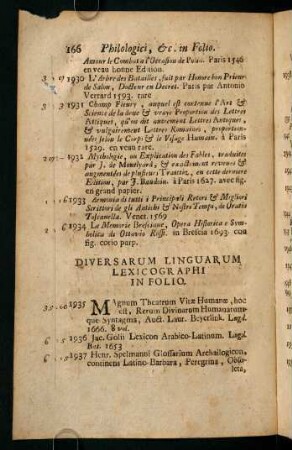 166 Philologici, &c. in Folio.
Autour le Combat a l'Occasion de Paris 1546
en veau bonne Edition.
1930 L'Arbre des Batailles, fait par Honore bon Prieur
de Salon, Docteur en Decret. Paris par Antonio
Verrard 1593. rare
1931 Champ Fleury, auquel est contenue l'Art &
Science de la deue & vraye Proportion des Lettres
Attiques, qu'on dit autrement Lettres Antiques,
& vulgairement Lettres Romaines, proportion-
nées selon le Corps & le Visage Humain. à Paris
1529. en veau rare.
1932 Mythologie, ou Explication des Fables, traduites
par J. de Montlyard, & exactement reveue &
augmentées de plusieurs Traittés, en cette derniere
Edition, par J. Baudoin. à Paris 1627. avec fig.
en grand papier.
1933 Armonia di tutti i Principali Retori & Megliori
Scrittori de gli Antichi & Nostre Tempi, di Oratio
Toscanella. Venet. 1569
1934 Le Memorie Bresciane, Opera Historica e Sym-
bolica di Ottavio Rossi. in Brescia 1693. con
fig. corio purp.
DIVERSARUM LINGUARUM
LEXICOGRAPHI
IN FOLIO.
1935 Magnum Theatrum Vitæ Humanæ, hoc
est, Rerum Divinarum Humanarum-
que Syntagma, Auct. Laur. Beyerlink. Lugd.
1666. 8 vol.
1936 Jac. Golii Lexicon Arabico-Latinum. Lugd.
Bat. 1653
1937 Henr. Spelmanni Glossarium Archailogicon,
continens Latino-Barbara, Peregrina, Obso-
leta,